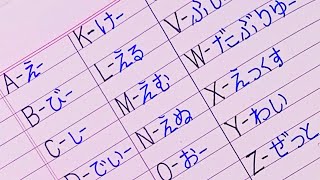 A-えー
B-びー
C-しー
D-でぃー
K-けー
L-える
M-えむ
N-えぬ
O-おー
W-だぶりゅー
X-えっくす
Y-わい
Z-ぜっと